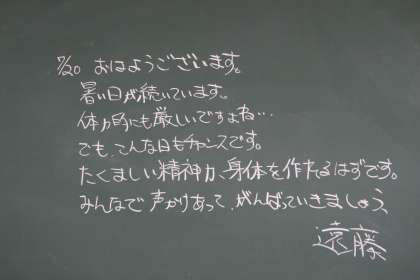 7/20 おはようございます。
暑い日が続いています。
体力的にも厳しいですよね…
でも、こんな日もチャンスです。
たくましい精神力、身体を作れるはずです。
みんなで声かけあって、がんばっていきましょう、
遠藤